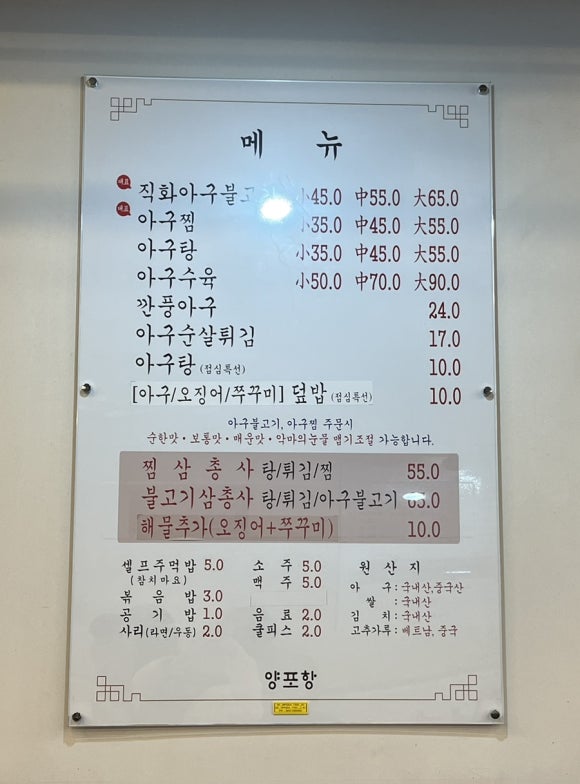 메 뉴
대표 직화아구불고 小45.0 中55.0 大65.0
대표 아구찜 小35.0 中45.0 大55.0
아구탕 小35.0 中45.0 大55.0
아구수육 小50.0 中70.0 大90.0
깐풍아구 24.0
아구순살튀김 17.0
아구탕(점심특선) 10.0
[아구/오징어/쭈꾸미] 덮밥(점심특선) 10.0
아구불고기, 아구찜 주문시
순한맛・보통맛・매운맛・악마의눈물 맵기조절 가능합니다.
찜 삼 총 사 탕/튀김/찜 55.0
불고기삼총사 탕/튀김/아구불고기 65.0
해물추가(오징어+쭈꾸미) 10.0
셀프주먹밥 5.0
(참치마요)
볶 음 밥 3.0
공 기 밥 1.0
사리(라면/우동) 2.0
소 주 5.0
맥 주 5.0
음 료 2.0
쿨피스 2.0
원 산 지
아 구 : 국내산,중국산
쌀 : 국내산
김 치 : 국내산
고추가루 : 베트남, 중국
양포항